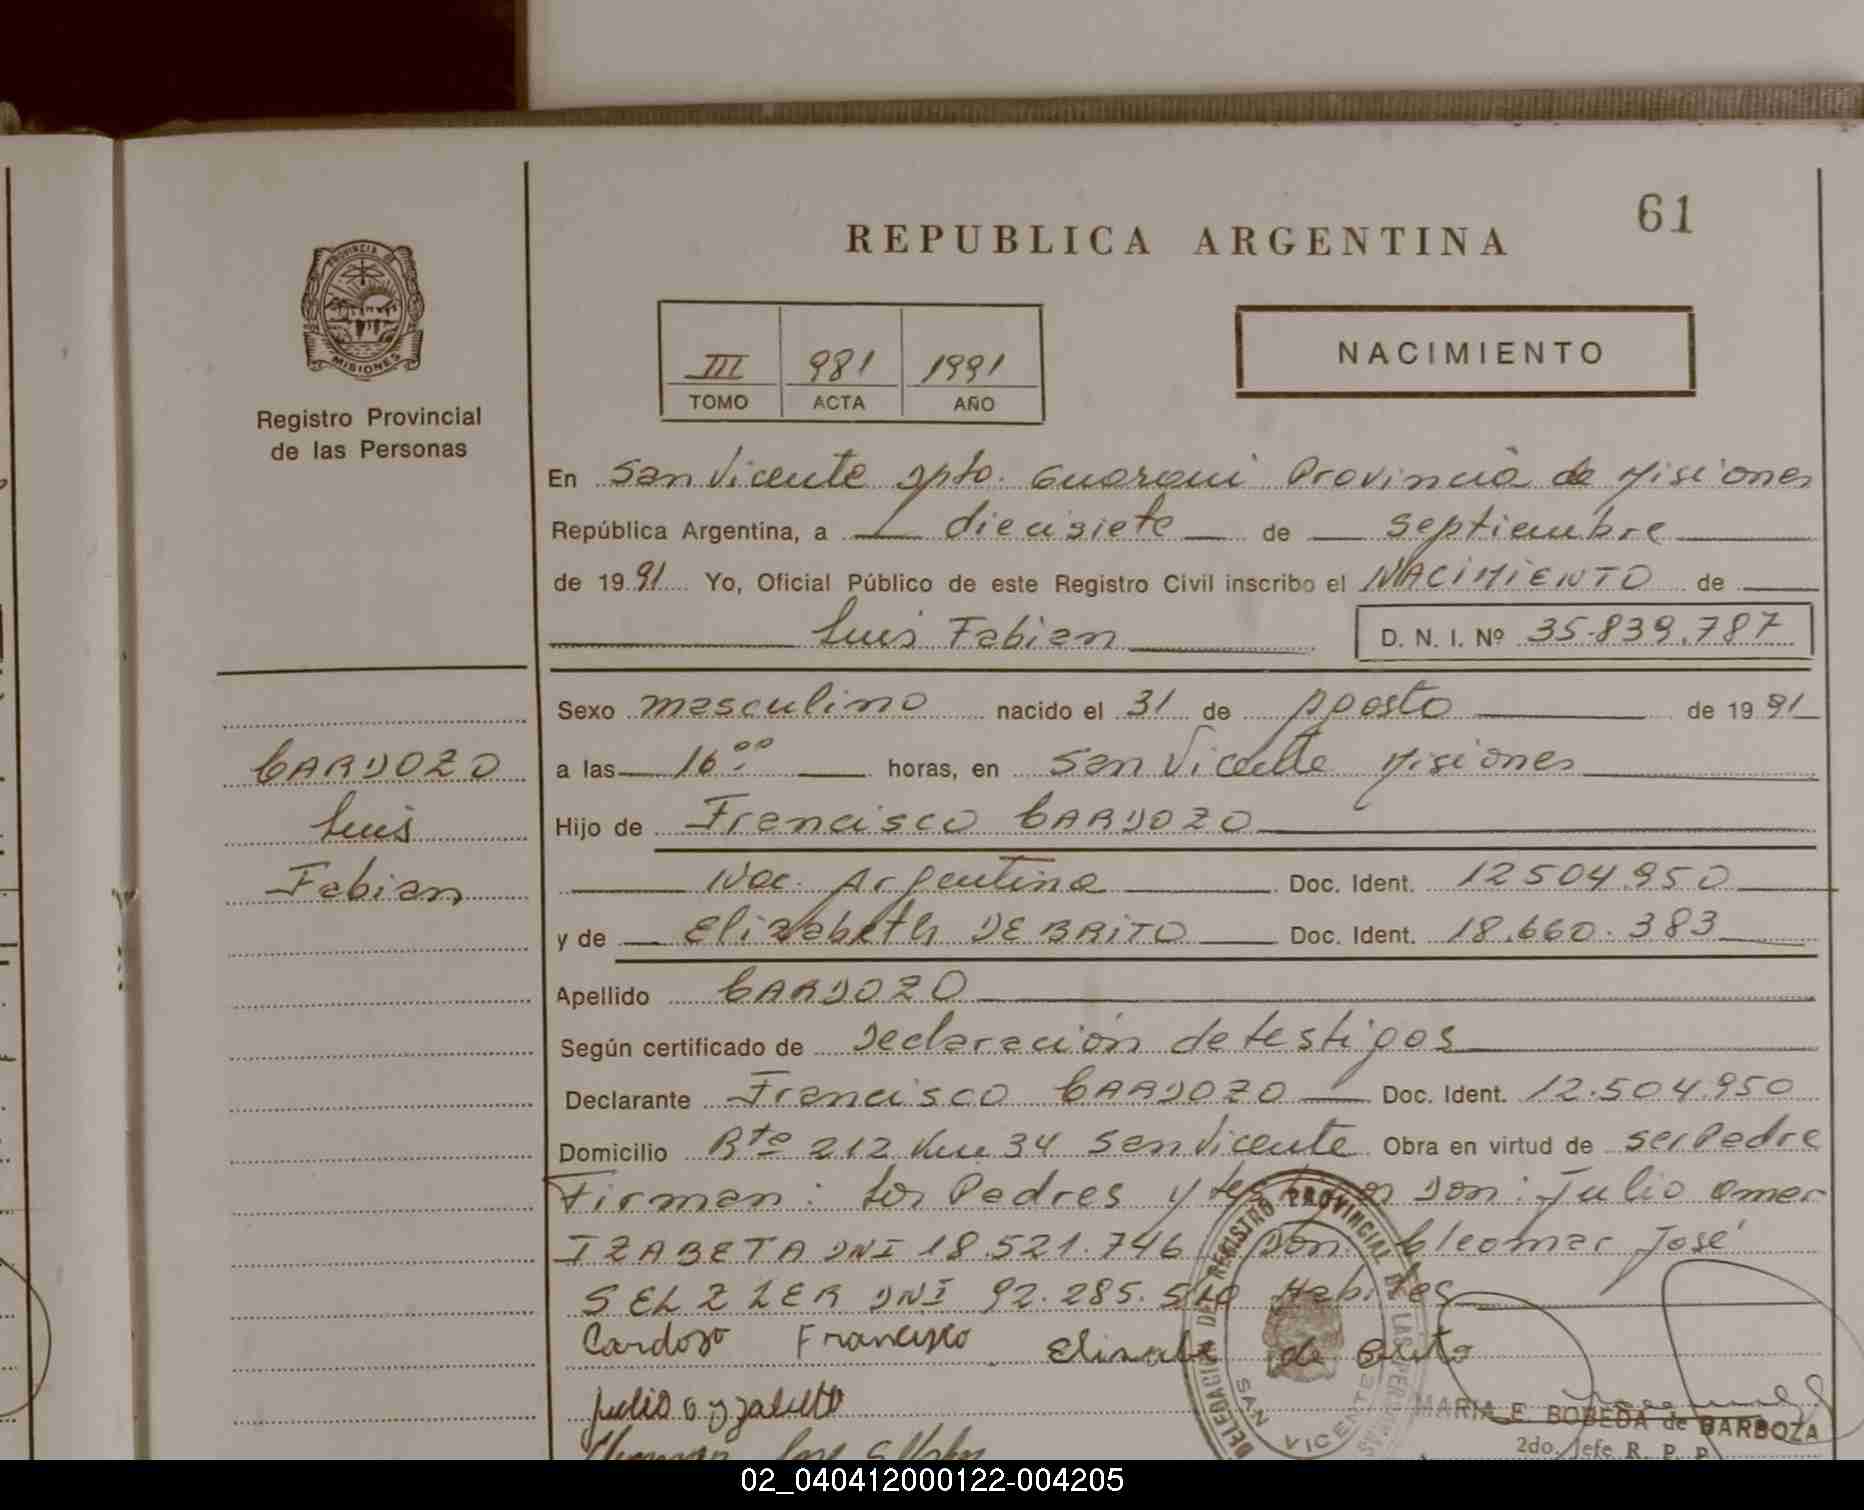 61
REPUBLICA ARGENTINA
PROVINCIA DE
MISIONES
Registro Provincial
de las Personas
III 981 1991
TOMO ACTA AÑO
NACIMIENTO
En San Vicente Dpto. Guaraní Provincia de Misiones
República Argentina, a diecisiete de septiembre
de 1991 Yo, Oficial Público de este Registro Civil inscribo el NACIMIENTO de
Luis Fabian D. N. I. Nº 35.839.787
Sexo masculino nacido el 31 de Agosto de 1991
CARDOZO
a las 16⁰⁰ horas, en San Vicente Misiones
Luis
Hijo de Francisco CARDOZO
Fabian
Nac. Argentina Doc. Ident. 12504.950
y de Elizabeth DE BRITO Doc. Ident. 18.660.383
Apellido CARDOZO
Según certificado de Declaración de testigos
Declarante Francisco CARDOZO Doc. Ident. 12.504.950
Domicilio Rta 212 Km 34 San Vicente Obra en virtud de ser Padre
Firman: Los Padres y testigos Don: Julio Omar
IZABETA DNI 18.521.746 Don Cleomar José
SELZLER DNI 92.285.510 Habiles
Cardozo Francisco Elizabe de Brito
Julio o yzabetta
DELEGACIA DEL REGISTRO PROVINCIAL DE LAS PERSONAS
SAN VICENTE
MARIA E. BOBEDA de BARBOZA
2do. Jefe R. P. P.
02_040412000122-004205